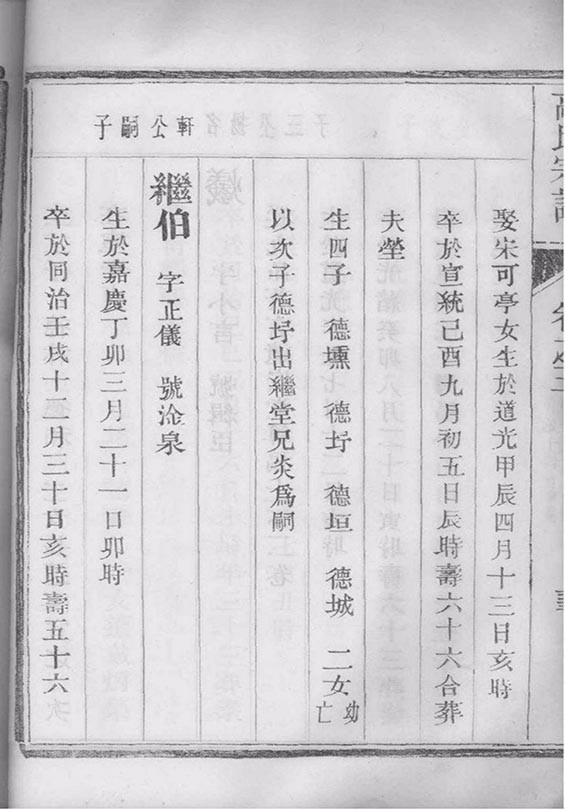 高氏宗譜
卷之三
娶宋可亭女生於道光甲辰四月十三日亥時
卒於宣統己酉九月初五日辰時壽六十六合葬
夫塋
生四子 德壎 德圩 德垣 德城 二女幼亡
以次子德圩出繼堂兄炎爲嗣
軒公嗣子
繼伯 字正儀 號淦泉
生於嘉慶丁卯三月二十一日卯時
卒於同治壬戌十二月三十日亥時壽五十六